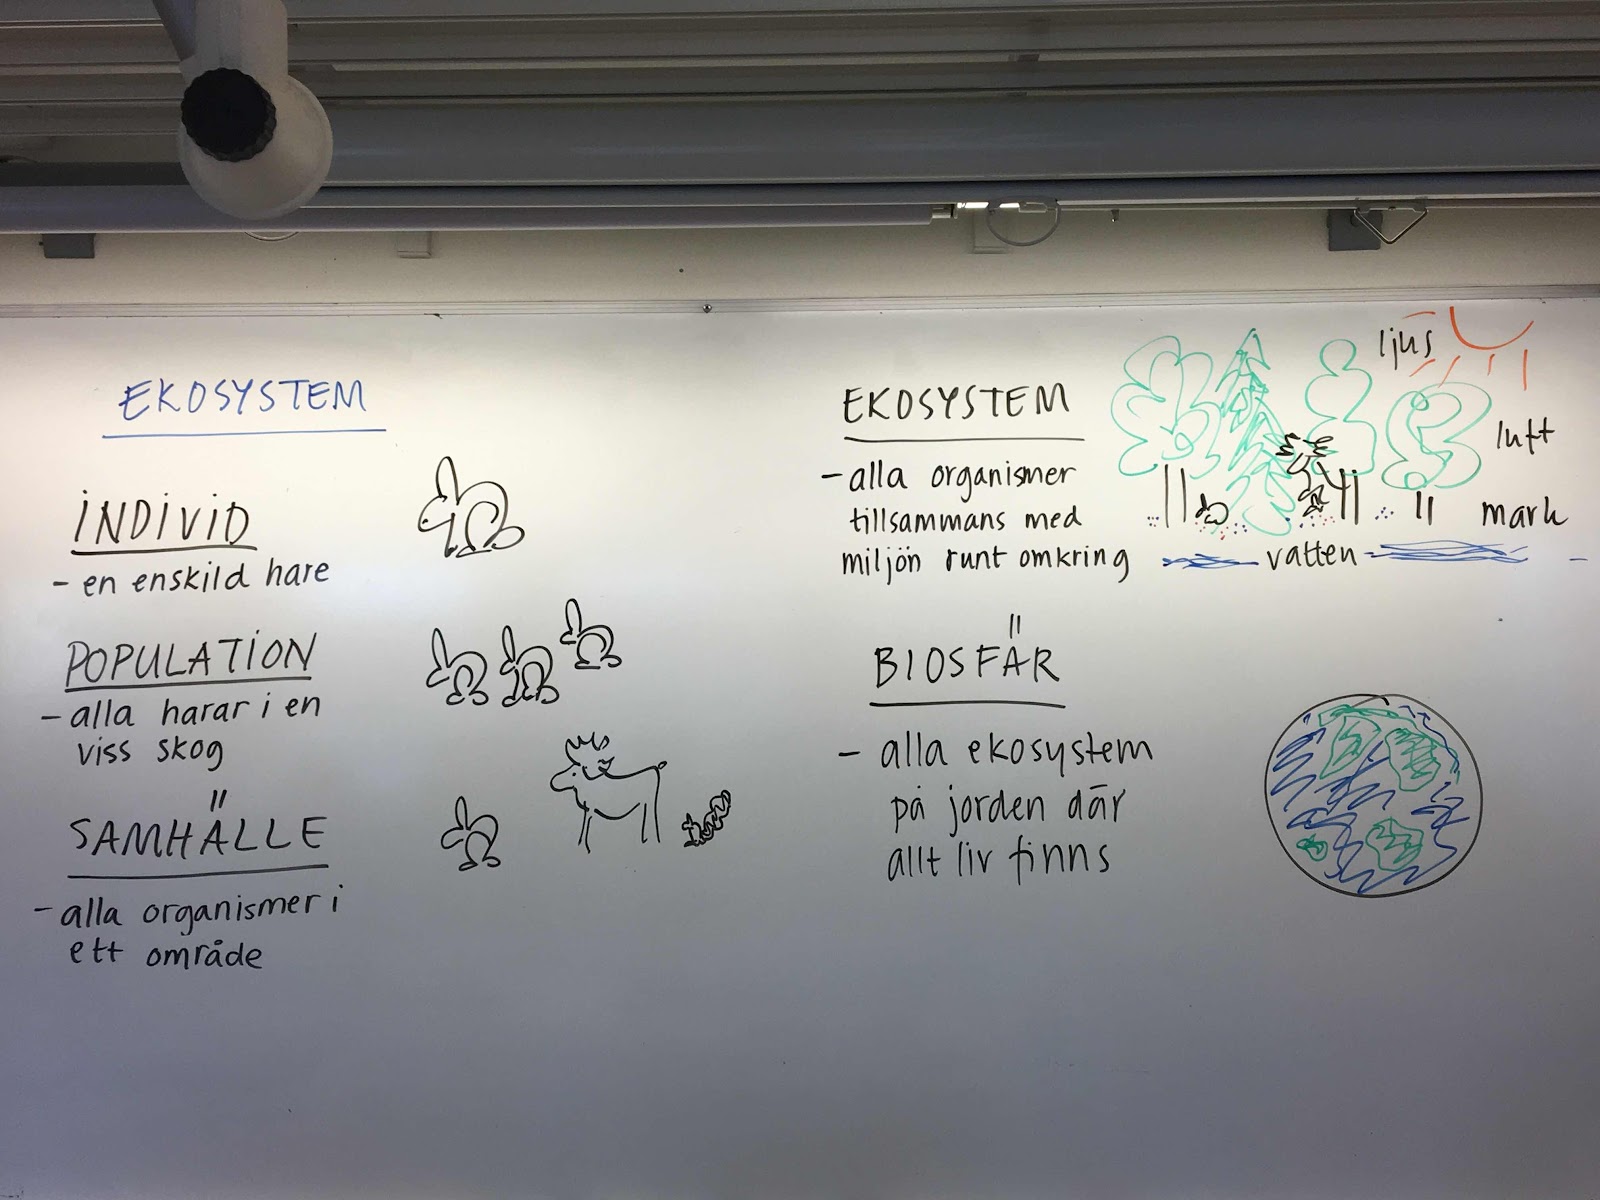 EKOSYSTEM
INDIVID
- en enskild hare
POPULATION
- alla harar i en
viss skog
SAMHÄLLE
- alla organismer i
ett område
EKOSYSTEM
- alla organismer
tillsammans med
miljön runt omkring
ljus
luft
mark
vatten
BIOSFÄR
- alla ekosystem
på jorden där
allt liv finns